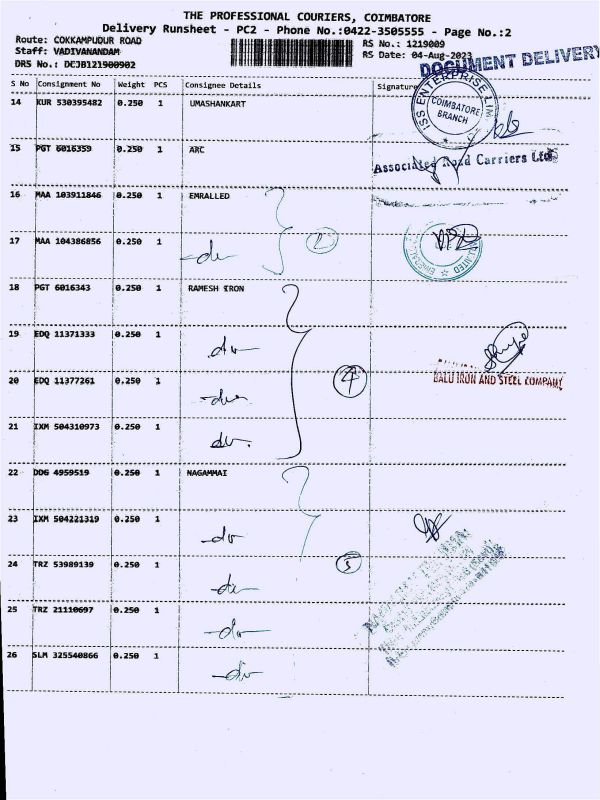 THE PROFESSIONAL COURIERS, COIMBATORE
Delivery Runsheet - PC2 - Phone No.:0422-3505555 - Page No.:2
Route: COKKAMPUDUR ROAD
RS No.: 1219009
Staff: VADIVANANDAM
RS Date: 04-Aug-2023
DRS No.: DCJB121900902
DOCUMENT DELIVERY
S No Consignment No Weight PCS Consignee Details Signature
14 KUR 530395482 0.250 1 UMASHANKART
ISS ENTERPRISE LIM
COIMBATORE
BRANCH
15 PGT 6016359 0.250 1 ARC
Associated Road Carriers Ltd
16 MAA 103911846 0.250 1 EMRALLED
17 MAA 104386856 0.250 1 -do-
2
18 PGT 6016343 0.250 1 RAMESH IRON
19 EDQ 11371333 0.250 1 -do-
20 EDQ 11377261 0.250 1 -do-
4
BALU IRON AND STEEL COMPANY
21 IXM 504310973 0.250 1 -do-
22 DDG 4959519 0.250 1 NAGAMMAI
23 IXM 504221319 0.250 1 -do-
24 TRZ 53989139 0.250 1 -do-
5
25 TRZ 21110697 0.250 1 -do-
26 SLM 325540866 0.250 1 -do-